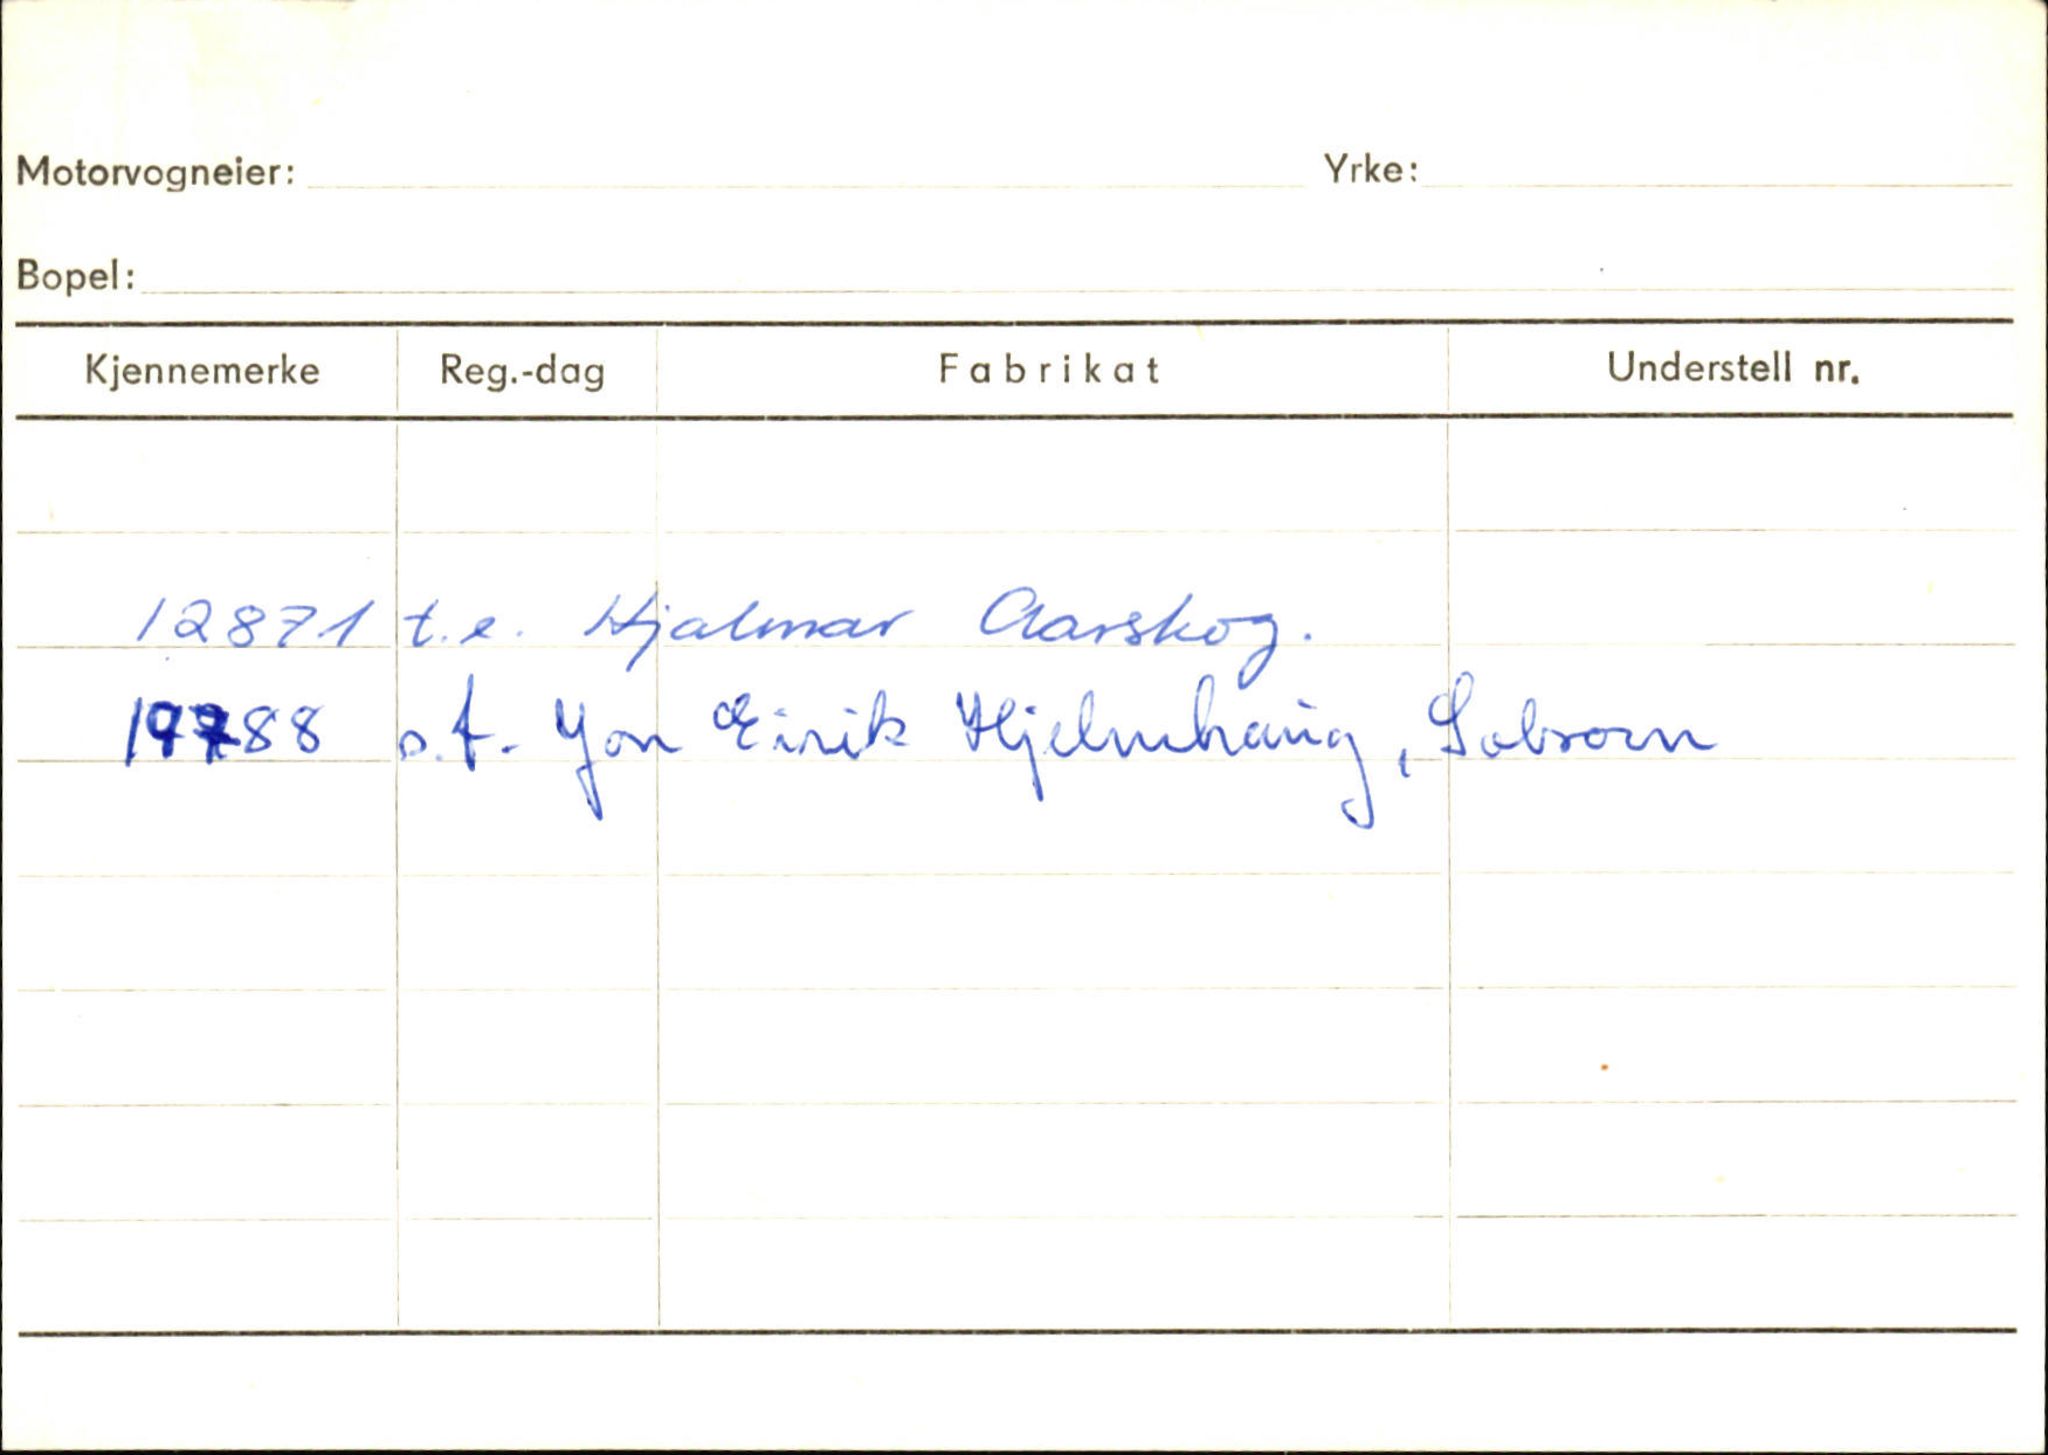 Motorvogneier: Yrke:
Bopel:
Kjennemerke Reg.-dag Fabrikat Understell nr.
12871 t.e. Hjalmar Aarskog.
o.f. Jon Eirik Hjelmhaug,